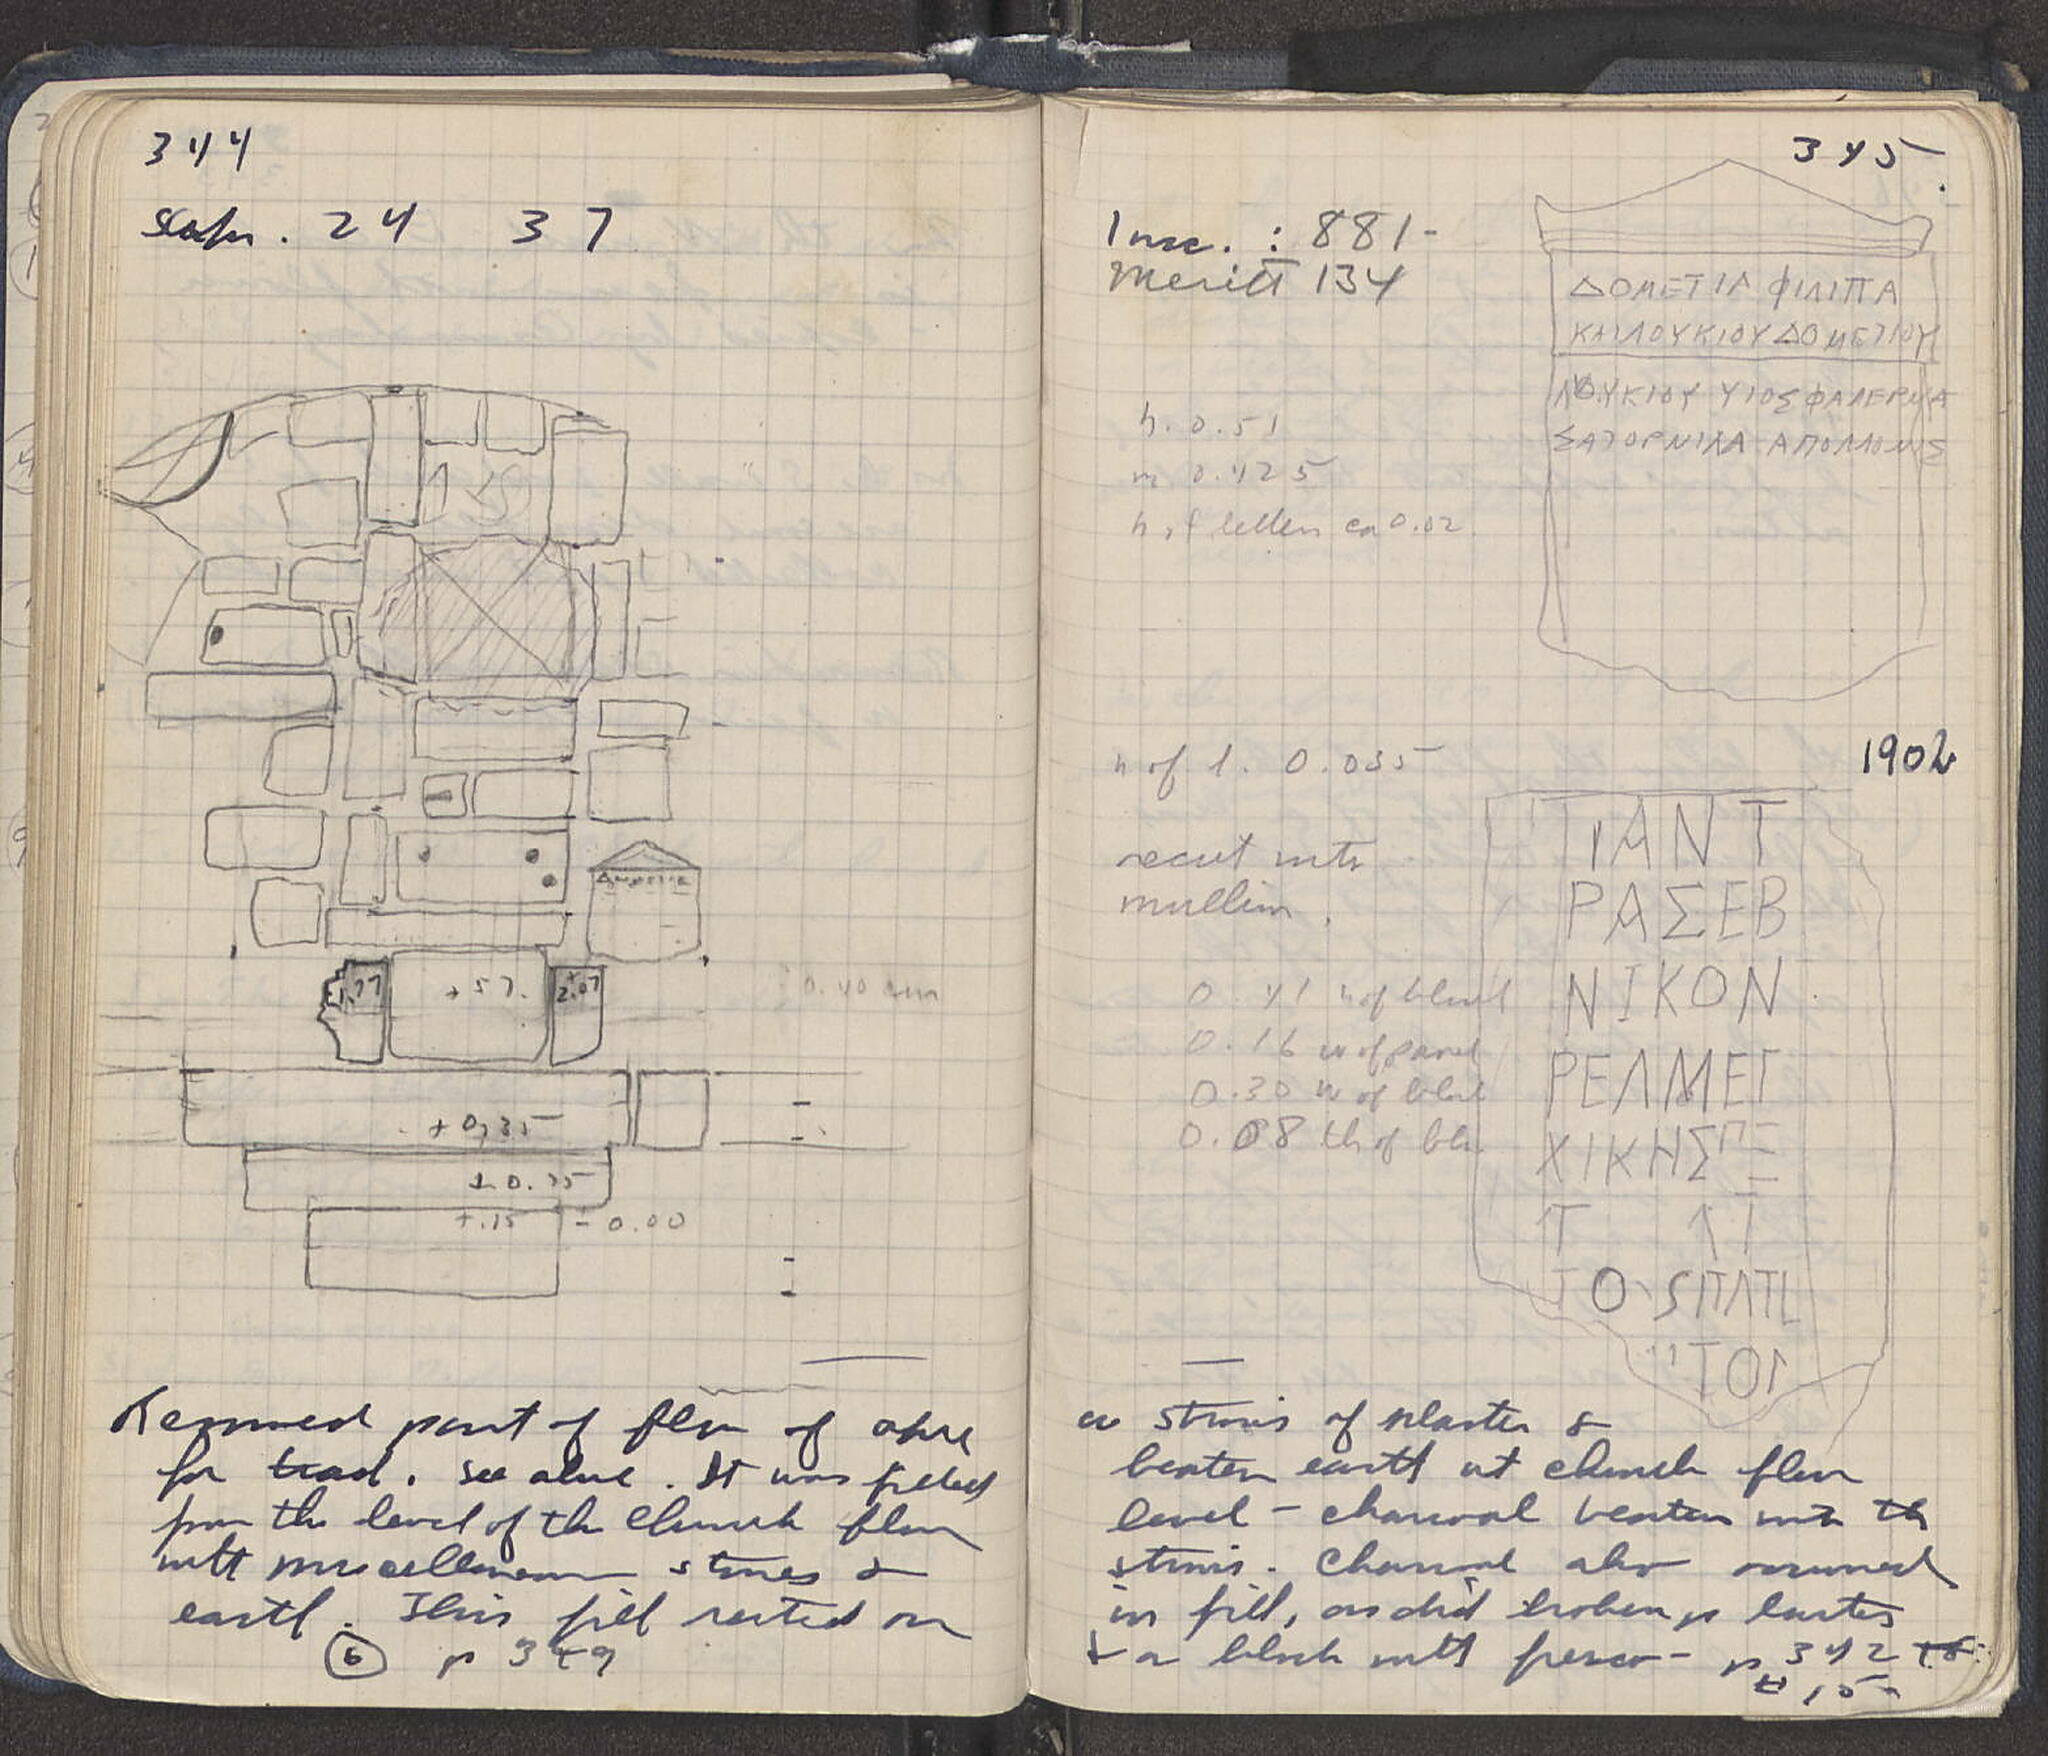 344
Septr. 24 37
ΔΟΜΕΤΙΑ
1.77
+57.
+2.07
0.40 cm
+0.35
+0.25
+.15
= 0.00
Removed part of floor of apse
for . See above. It was filled
from the level of the Church floor
with miscellaneous stones &
earth. This fill rested on
6 p 349
345.
Insc. : 881-
Meritt 134
ΔΟΜΕΤΙΑ ΦΙΛΙΠΑ
ΚΑΙΛΟΥΚΙΟΥΔΟΜΕΤΙΟΥ
ΛΟΥΚΙΟΥ ΥΙΟΣΦΑΛΕΡΝΑ
ΣΑΤΟΡΝΙΛΑ ΑΠΟΛΛΩΝΙΣ
h. 0.51
w 0.425
h of letters ca 0.02
h of l. 0.035
1902
recut into
mullion.
0.41 h of block
0.16 w of panel
0.30 w of block
0.08 th of blo
ΤΙΑΝΤ
ΡΑΣΕΒ
ΝΙΚΟΝ
ΡΕΛΜΕΓ
ΧΙΚΗΣ
a strosis of plaster &
beaten earth at church floor
level - charcoal beaten into the
strosis. Charcoal also occurred
in fill, as did broken plaster
& a block with fresco - p 342
# 15